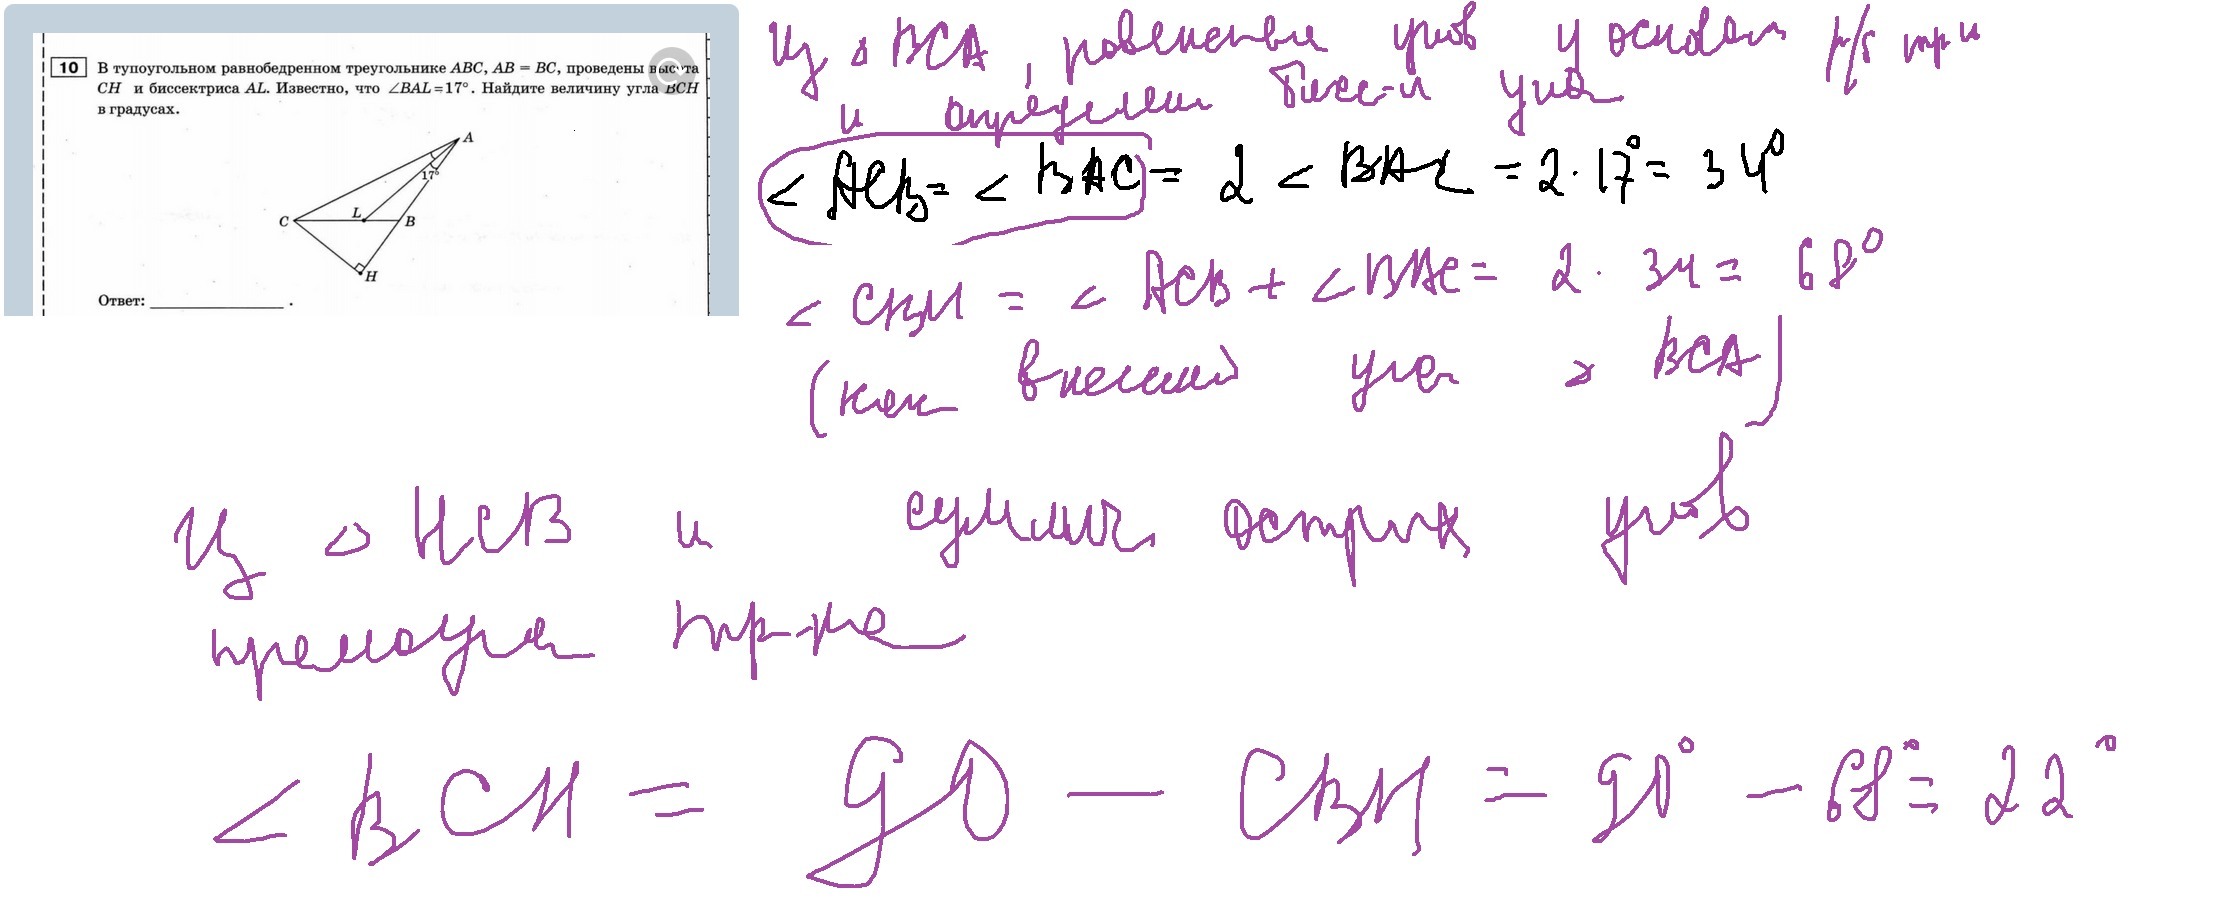 10 В тупоугольном равнобедренном треугольнике ABC, AB = BC, проведены высота
CH и биссектриса AL. Известно, что ∠BAL=17°. Найдите величину угла BCH
в градусах.
A
17°
C L B
H
Ответ: ______________ .
Из △ BCA, равенства углов у основан р/б тр и
и определен бисс-и угла
∠ ACB = ∠ BAC = 2 ∠ BAL = 2 · 17° = 34°
∠ CBH = ∠ ACB + ∠ BAC = 2 · 34 = 68°
(как внешний угол △ BCA)
Из △ HCB и суммы острых углов
прямоуг тр-ка
∠ BCH = 90 — CBH = 90° — 68° = 22°